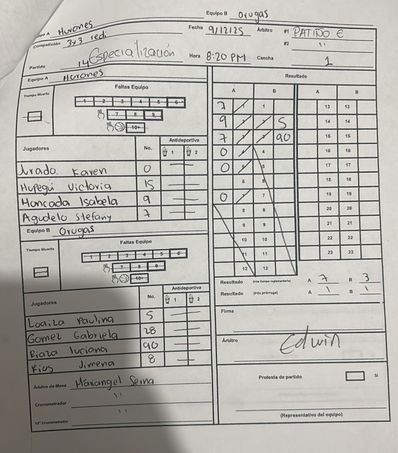 Equipo B Orugas
Equipo A Hurones
Fecha 9/12/25 Árbitro #1 PATIÑO E
Competición 3x3 redi
#2 11
Partido 14 Especialización
Hora 8:20 PM Cancha 1
Equipo A Hurones
Resultado
Tiempo Muerto
Faltas Equipo
1 2 3 4 5 6
7 8 9
10+
A B A B
7 1 1 13 13
9 5 14 14
7 90 15 15
0 4 16 16
0 17 17
6 18 18
0 7 19 19
8 8 20 20
9 9 21 21
10 10 22 22
11 11 23 23
12 12
Antideportiva
Jugadores No. 1 2
Jurado Karen 0
Hupegui Victoria 15
Moncada Isabela 9
Agudelo Stefany 7
Equipo B Orugas
Tiempo Muerto
Faltas Equipo
1 2 3 4 5 6
7 8 9
10+
Antideportiva
Jugadores No. 1 2
Loaiza Paulina 5
Gomez Gabriela 28
Riaza luciana 90
Rios Jimena 8
Resultado A 7 B 3
Resultado (No prórroga) A \ B \
Firma
Árbitro Edwin
Árbitro de Mesa Marangel Serna
Cronometrador 11
11
Protesta de partido Sí
(Representativo del equipo)